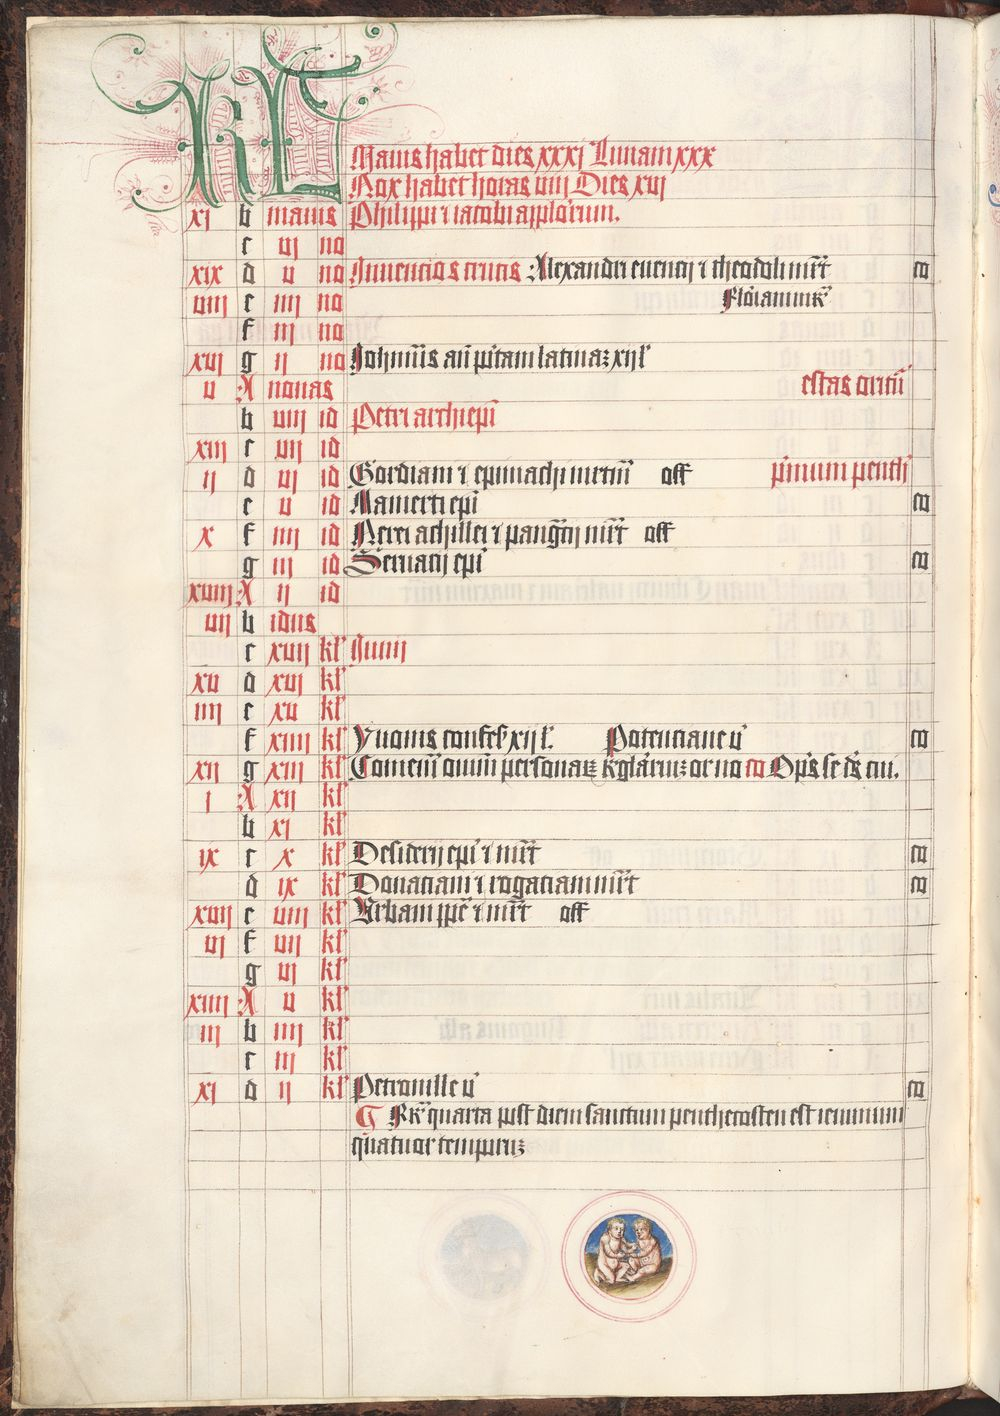 KL
Maius habet dies xxxj Lunam xxx
Nox habet horas viij Dies xvj
xj b maius Philippi ⁊ iacobi ap̄plorum.
c vj no
xix d v no Inuencio s crucis Alexandri euentij ⁊ theodoli mr̄t co
viij e iiij no Floriani mr̄
f iij no
xvj g ij no Johannis an̄ portam latinaz xij l'
v A nonas estas oritur̄
b viij id Petri archiep̄i
xiij c vij id
ij d vj id Gordiani ⁊ epimachi mr̄m off primum penth̄
e v id Mamerti ep̄i co
x f iiij id Nerei achillei ⁊ pangc̄ij mr̄t off
g iij id Seruacij ep̄i co
xviij A ij id
vij b idus
c xvij kl' Junij
xv d xvj kl'
iiij e xv kl'
f xiiij kl' Yuonis confess' xij l'. Potenciane v' co
xij g xiij kl' Comem̄ om̄m personaꝝ
j A xij kl'
b xj kl'
ix c x kl' Desiderij ep̄i ⁊ mr̄t co
d ix kl' Donaciani ⁊ rogaciani mr̄t co
xvij e viij kl' Vrbani pp̄e ⁊ mr̄t off
vj f vij kl'
g vj kl'
xiiij A v kl'
iij b iiij kl'
c iij kl'
xj d ij kl' Petronille v' co
quarta post diem sanctum penthecosten est ieiunium
quatuor temporuz